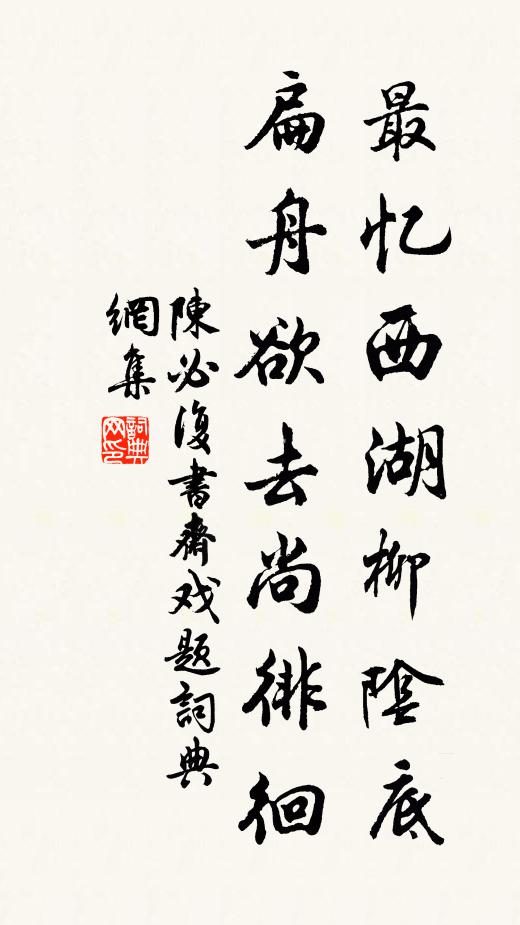 最忆西湖柳陰底
扁舟欲去尚徘徊
陳必復書齋戏題詞典
網集
詞典网印